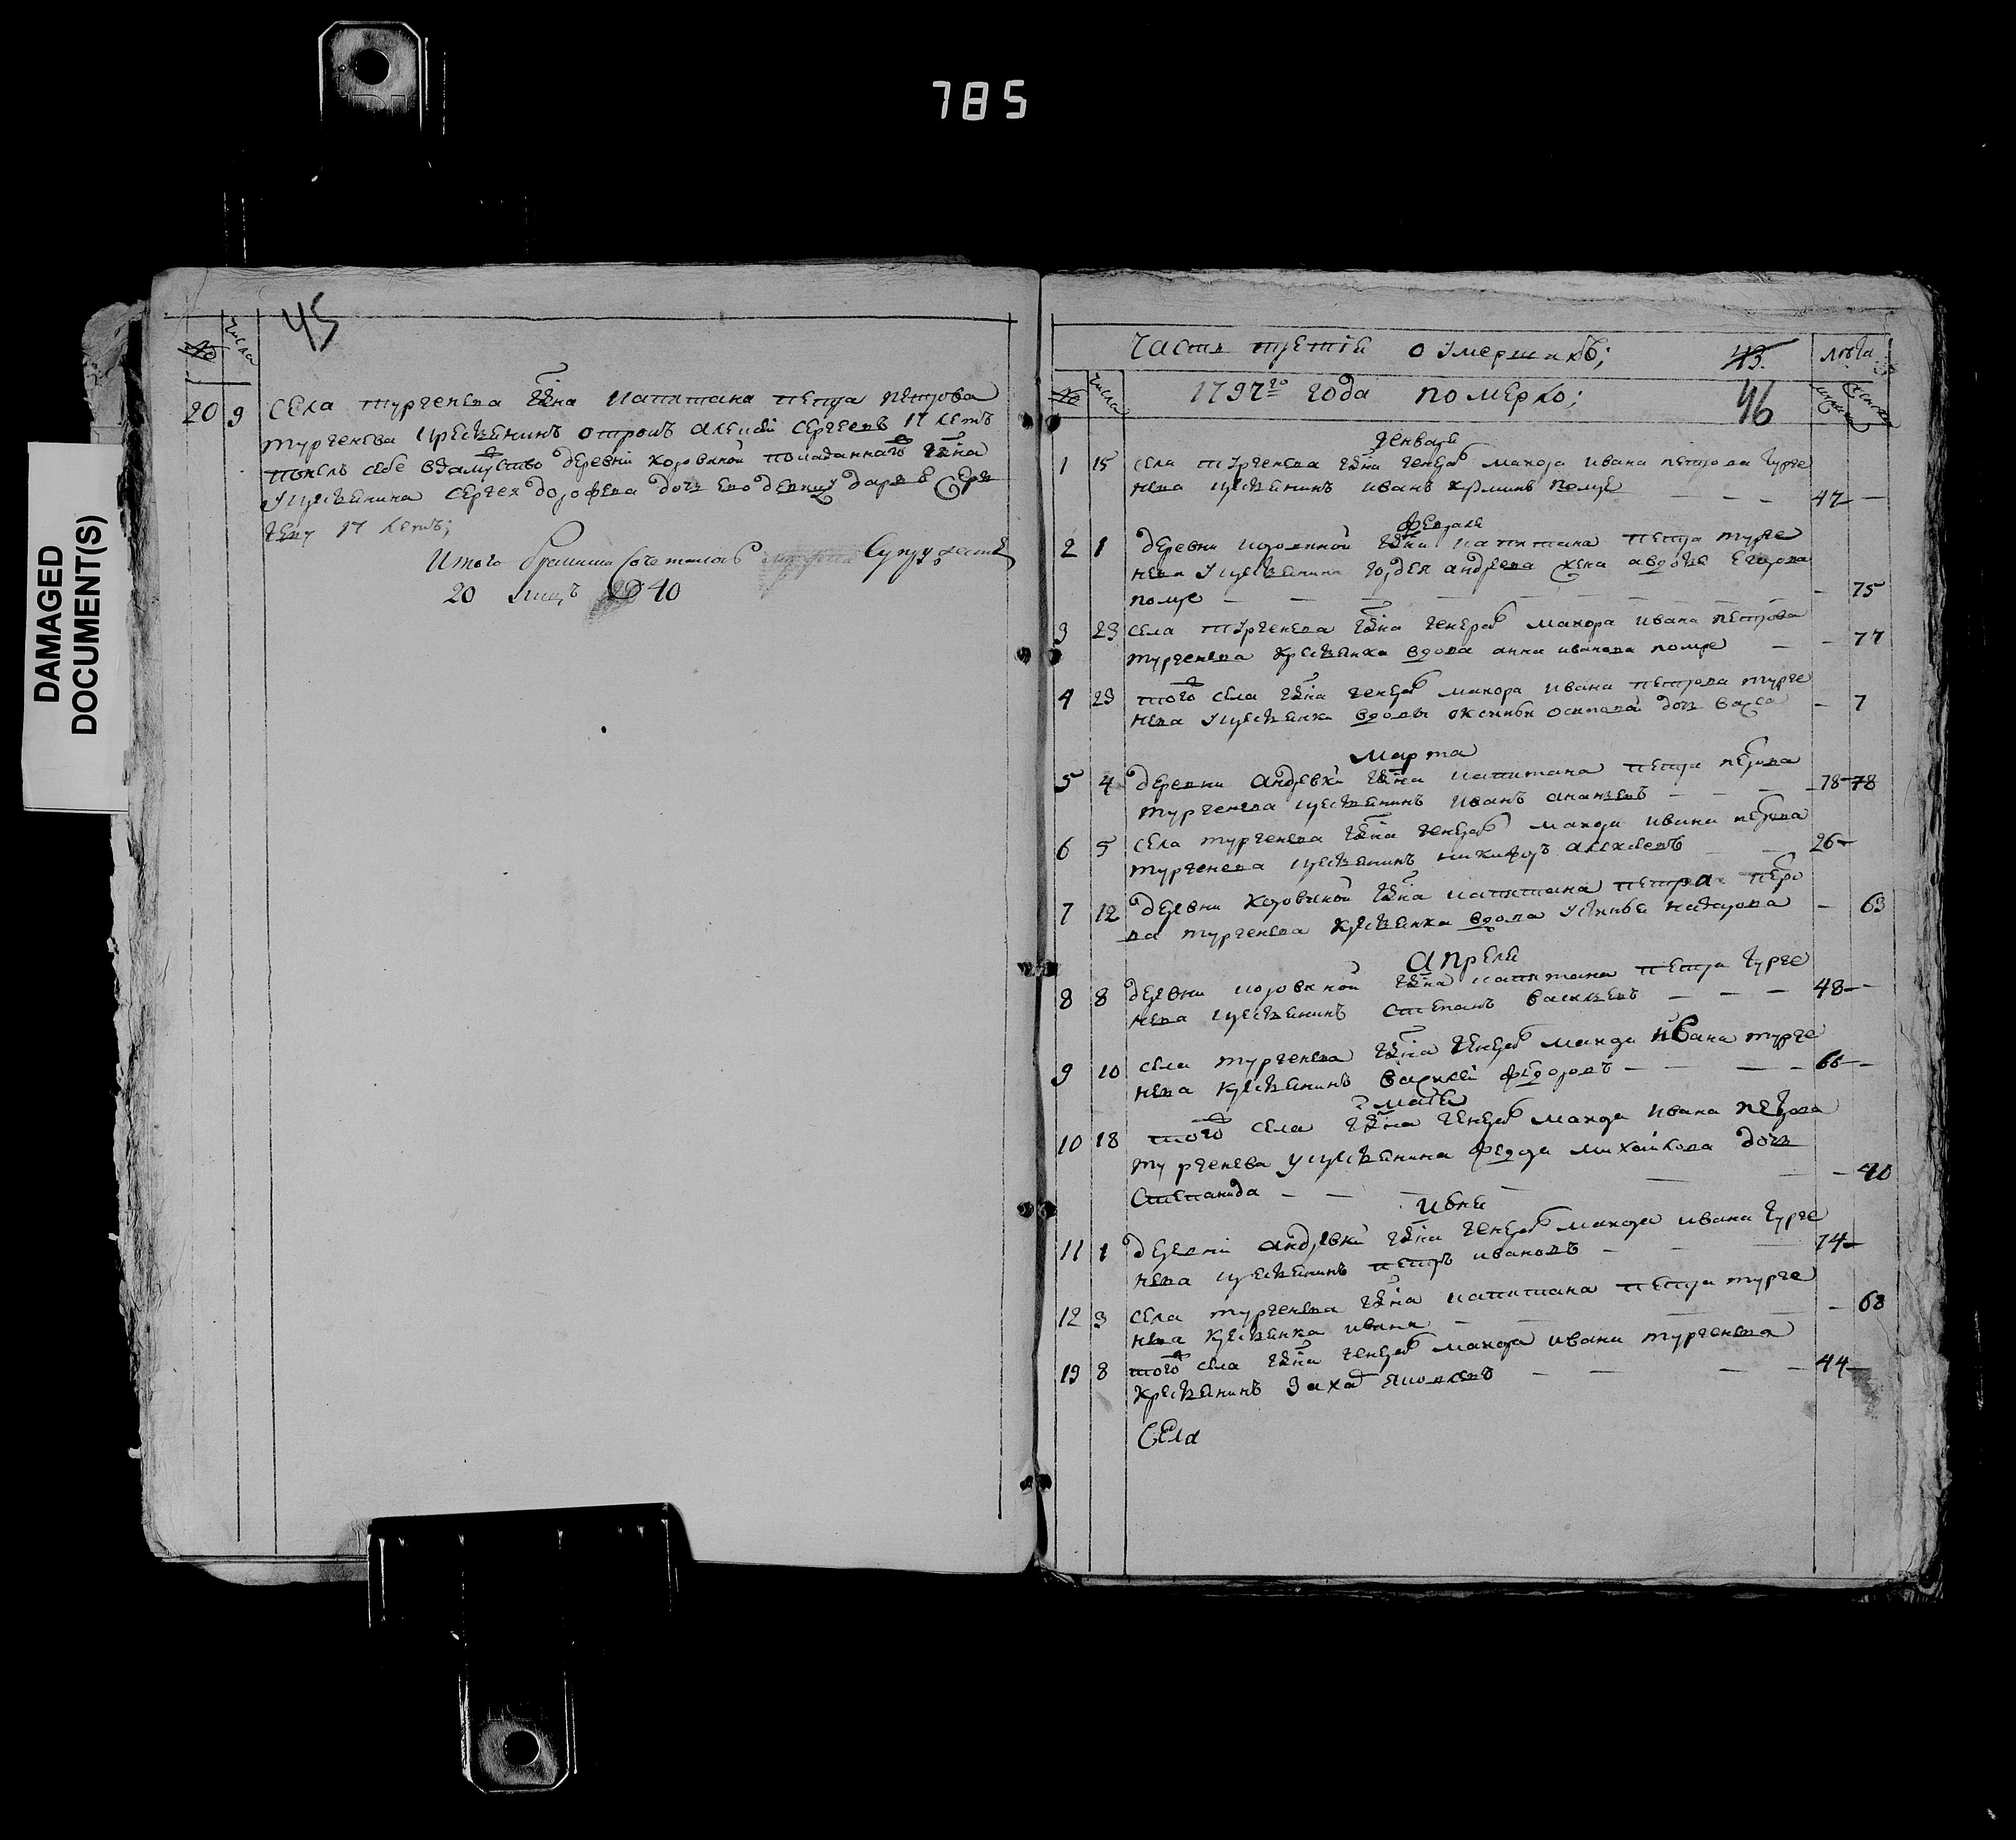 785
DAMAGED
DOCUMENT(S)
45
№ числа
20 9 села тургенева гдна капитана петра петрова
тургенева крестьянинъ отрокъ алексей сергеевъ 17 летъ
понелъ себе взамуство деревни коровиной гдна
крестьянина сергея дорофева дочь ево девку дарью серге
еву 17 летъ;
Итого браками сочеталось супружествъ
20 лицъ 40
часть третия о умершихъ; 43. лѣта
46
№ числа 1797го года померло;
генваря
1 15 села тургенева гдна генерал маиора ивана петрова турге
нева крестьянинъ иванъ помре — — — 47 —
февраля
2 1 деревни коровиной гдна капитана петра турге
нева у крестьянина гордея андреева жена авдотья егорова
помре — — — 75
3 23 села тургенева гдна генерал маиора ивана петрова
тургенева крестьянка вдова анна иванова помре — — 77
4 23 того села гдна генерал маиора ивана петрова турге
нева у крестьянки вдовы оксиньи осиповой дочь — 7
марта
5 4 деревни андревки гдна капитана петра петрова
тургенева крестьянинъ иванъ ананьевъ — — — 78 78
6 5 села тургенева гдна генерал маиора ивана петрова
тургенева крестьянинъ никифоръ алексеевъ — — 26 —
7 12 деревни коровиной гдна капитана петра петро
ва тургенева крестьянка вдова устинья — 63
апреля
8 8 деревни коровиной гдна капитана петра турге
нева крестьянинъ степанъ васильевъ — — — 48 —
9 10 села тургенева гдна генерал маиора ивана турге
нева крестьянинъ василей федоровъ — — — 66 —
маия
10 18 того села гдна генерал маиора ивана петрова
тургенева у крестьянина федора михайлова дочь
степанида — — — — 40
июня
11 1 деревни андревки гдна генерал маиора ивана турге
нева крестьянинъ петръ ивановъ — — 74 —
12 3 села тургенева гдна капитана петра турге
нева крестьянка — — — 68
13 8 того села гдна генерал маиора ивана тургенева
крестьянинъ захар яковлевъ — — — 44 —
Села